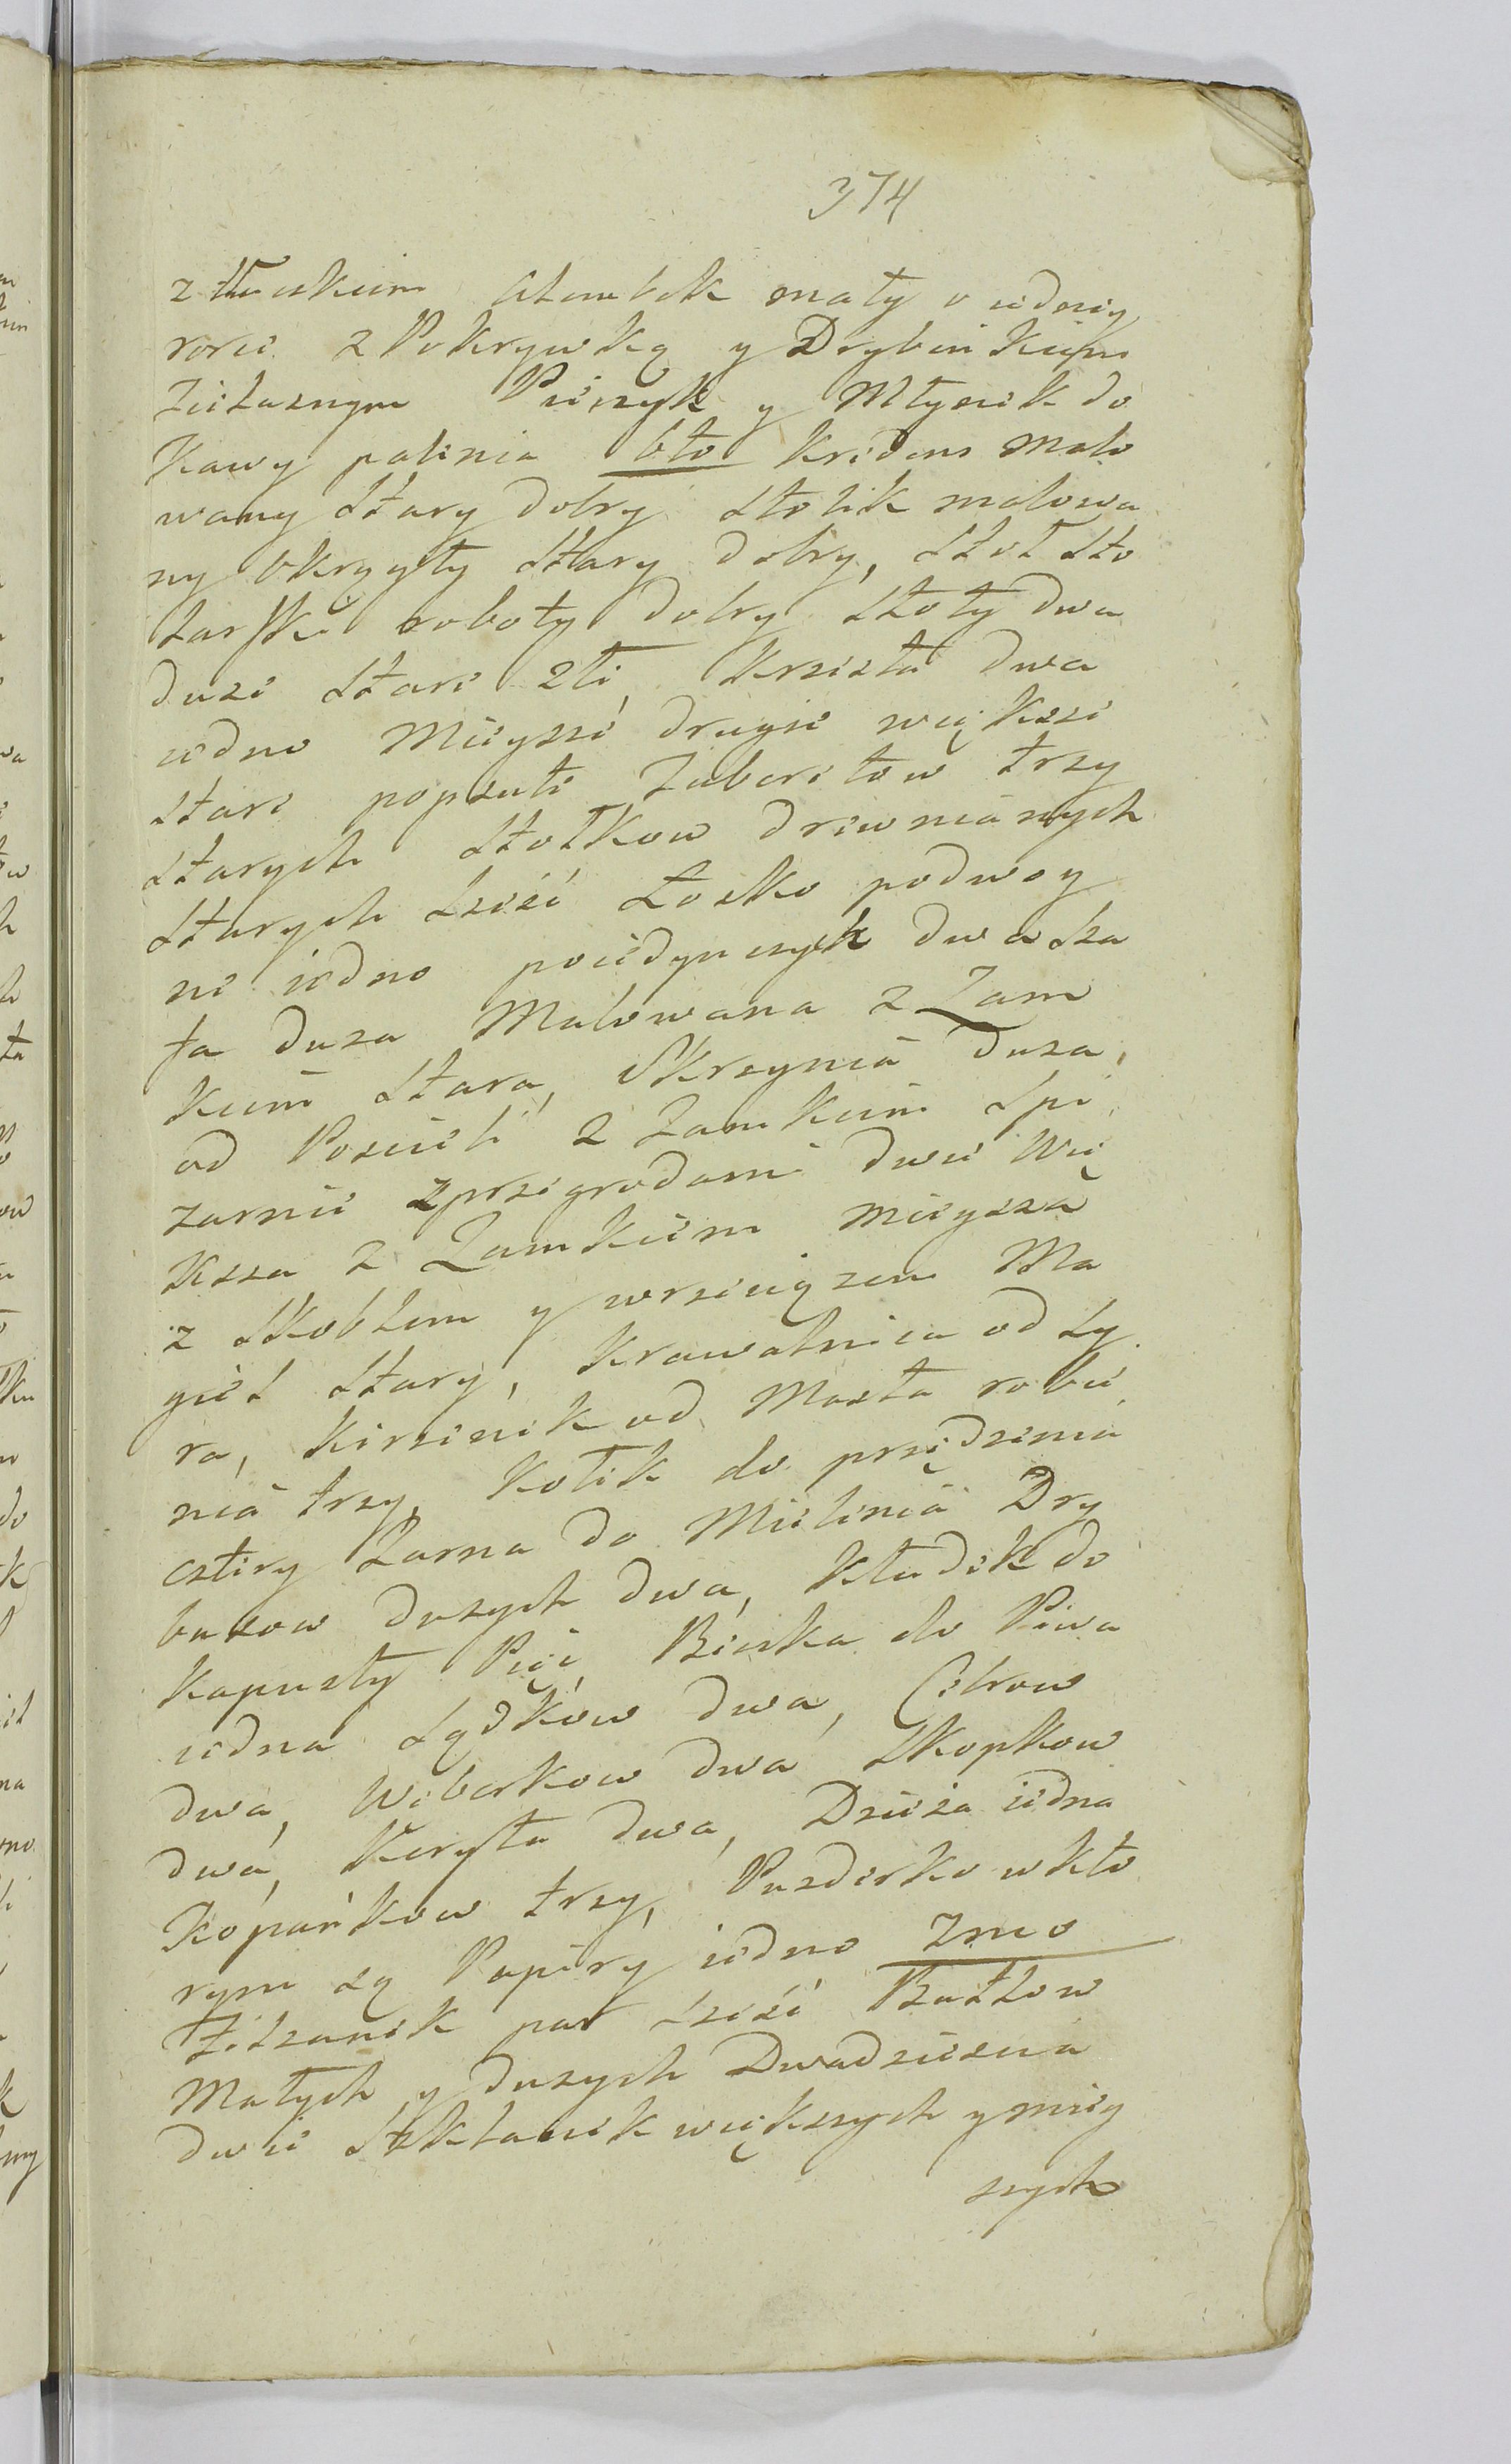 374
z tłuczkiem Alembik mały o iedney
rorze z Pokrywką y Drybinkiem
żelaznym Piecyk y Młynik do
Kawy palenia 6to Kredens malo
wany stary dobry stolik malowa
ny okrągły stary dobry, stoł sto
larski roboty dobry stoły dwa
duze stare złe, Krzesła dwa
iedno Mieysze drugie większe
stare popsute Zuberetow trzy
starych stołkow drewnianych
starych sześć Łosko podwoy
ne iedno poiedynczych dwa sza
fa duza Malowana z Zam
kiem stara, Skrzynia duza,
od Posciele z Zamkiem spi
zarnie zprzegrodami dwie Wię
ksza z Zamkiem mieysza
z skoblem y wrzeciązem Ma
giel stary, Krawatnica od Sy
ra, Kierzenek od Masła robie
nia trzy, Kołek do przędzenia
cztery Żarna do Mielenia Dry
busow duzych dwa, Kłudek do
kapusty Pięć Beczka do Piwa
iedna Sądkow dwa, Cebrow
dwa, Weborkow dwa Skopkow
dwa, Koryta dwa, Dzieża iedna
Kopańkow trzy, Puzderko wkto
rym są Papiery iedno 7mo
Filzanek par sześć Butlow
Małych y duzych Dwadziescia
dwie Szklanek większych y mniey
szych